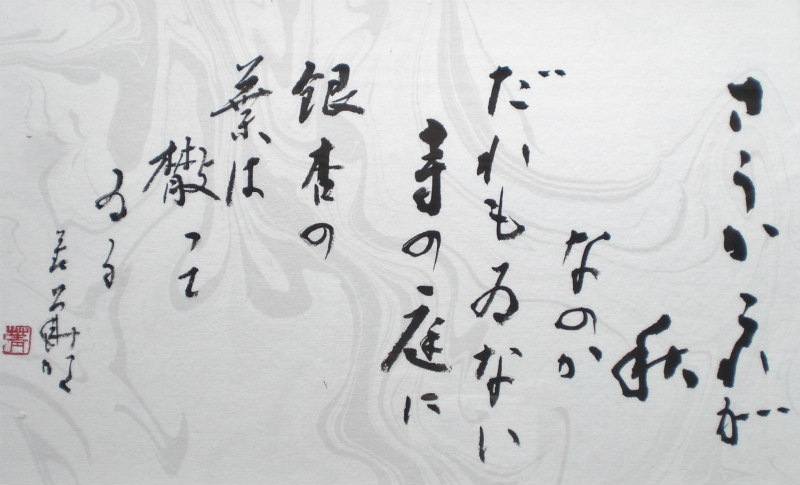 さうか これが
秋
なのか
だれもゐない
寺の庭に
銀杏の
葉は
散つて
ゐる